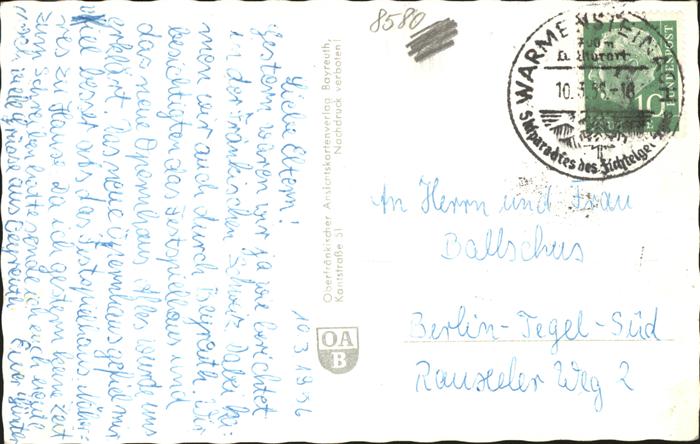 8580
10.3.1956
Liebe Eltern!
Gestern waren wir ja wie berichtet
in der Fränkischen Schweiz. Dabei ka-
men wir auch durch Bayreuth. Wir
besichtigten das Festspielhaus und
das neue Opernhaus. Alles wurde uns
erklärt. Das neue Opernhaus gefiel mir
viel besser als das Festspielhaus.
zu Hause da ich gestern keine Zeit
zum Schreiben hatte sende ich euch heute
noch viele Grüße aus Bayreuth
Euer
Oberfränkischer Ansichtskartenverlag Bayreuth,
Kantstraße 51 Nachdruck verboten!
OA
B
WARMENSTEINACH
Luftkurort
10.3.56-18
Skiparadies des Fichtelgeb
10
DEUTSCHE BUNDESPOST
An Herrn und Frau
Ballschus
Berlin-Tegel-Süd
Rauxeler Weg 2